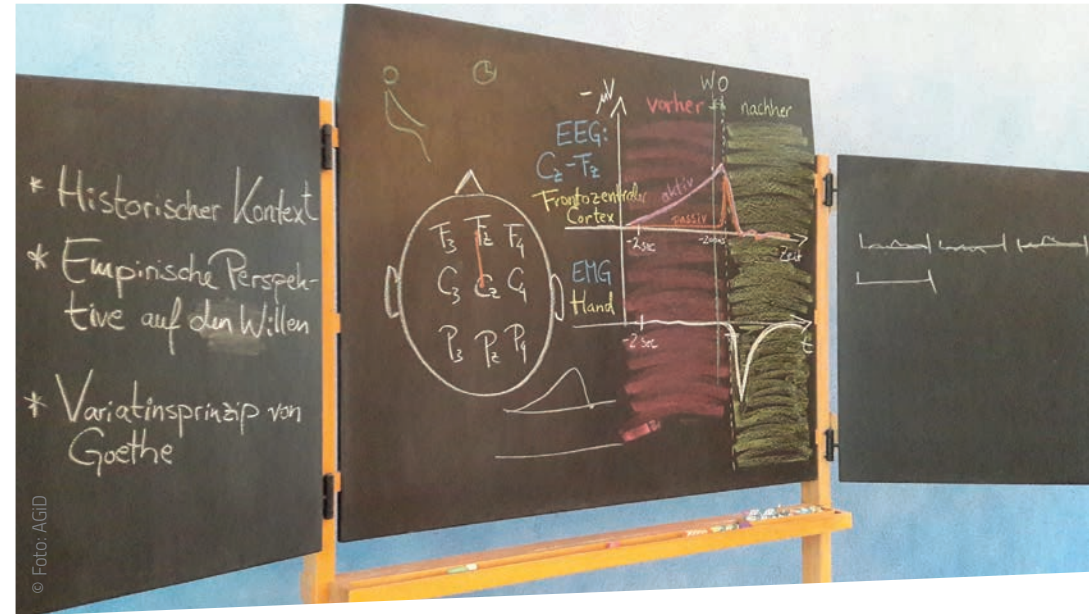 * Historischer Kontext
* Empirische Perspek-
tive auf den Willen
* Variatinsprinzip von
Goethe
F3 Fz F4
C3 Cz C4
P3 Pz P4
- µV
vorher
W O
nachher
EEG:
Cz-Fz
Frontozentraler
Cortex
aktiv
passiv
-2sec
Zeit
EMG
Hand
-2sec
t
© Foto: AGiD